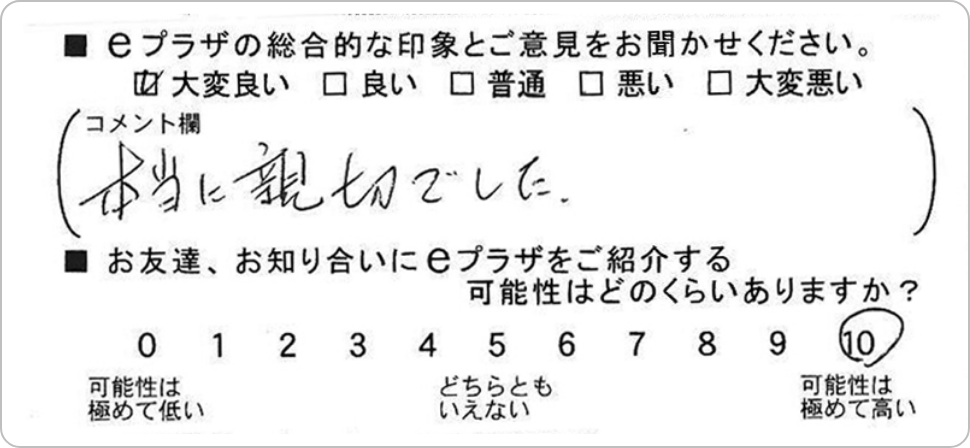 ■ eプラザの総合的な印象とご意見をお聞かせください。
☑ 大変良い □ 良い □ 普通 □ 悪い □ 大変悪い
コメント欄
本当に親切でした.
■ お友達、お知り合いにeプラザをご紹介する
可能性はどのくらいありますか？
0 1 2 3 4 5 6 7 8 9 10
可能性は 極めて低い
どちらとも いえない
可能性は 極めて高い